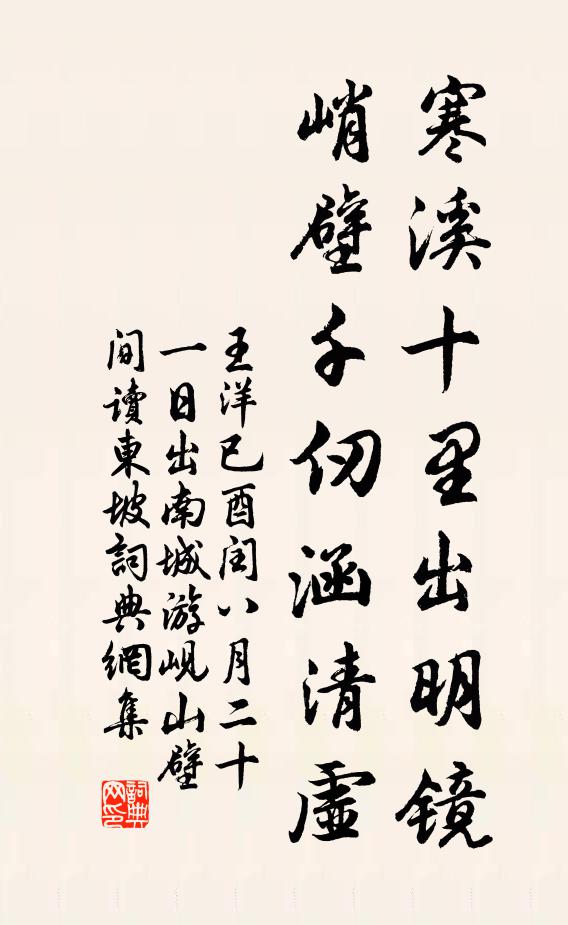 寒溪十里出明镜
峭壁千仞涵清虚
王洋己酉闰八月二十
一日出南城游岘山壁
间读东坡詞典網集
詞典网印